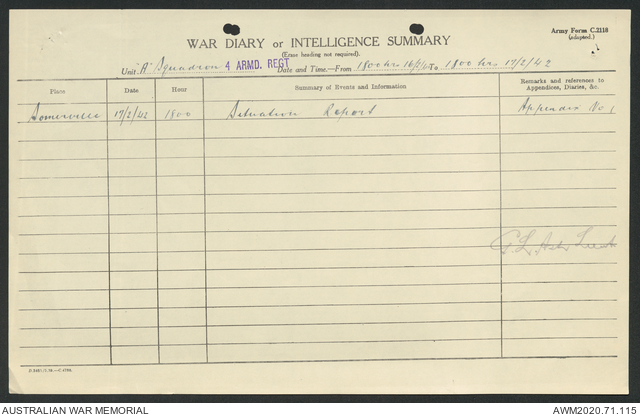 Army Form C.2118
(adapted.)
WAR DIARY or INTELLIGENCE SUMMARY
(Erase heading not required).
Unit "A" Squadron 4 ARMD. REGT Date and Time.—From 1800 hrs 16/2/42 To 1800 hrs 17/2/42
Place Date Hour Summary of Events and Information Remarks and references to Appendices, Diaries, &c.
Somerville 17/2/42 1800 Situation Report Appendix No 1
AUSTRALIAN WAR MEMORIAL AWM2020.71.115